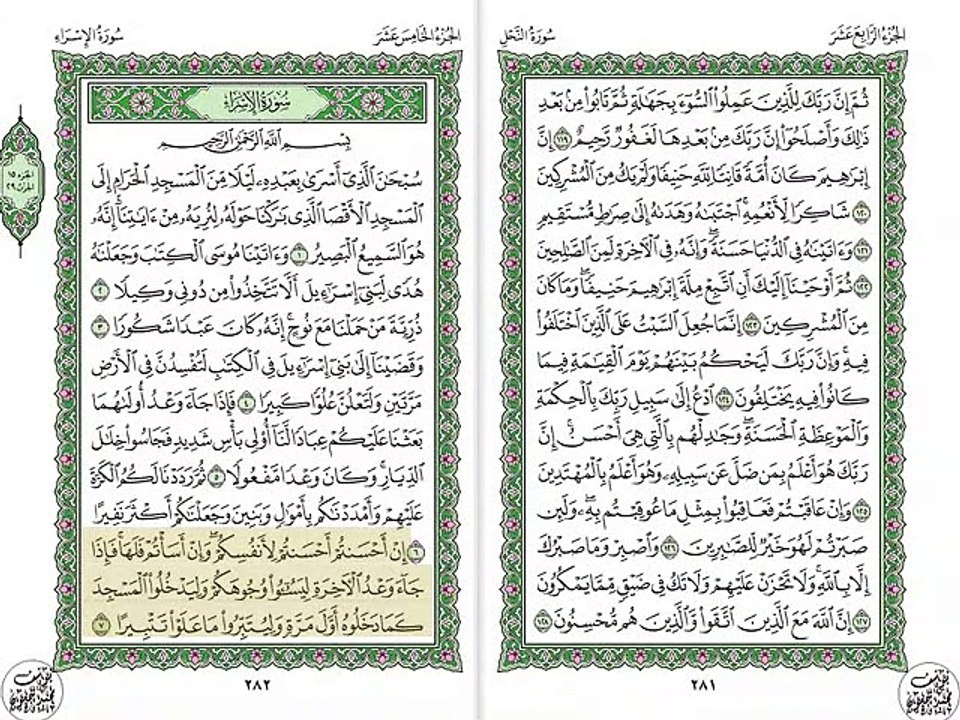 الجزء الرابع عشر
سورة النحل
ثُمَّ إِنَّ رَبَّكَ لِلَّذِينَ عَمِلُوا۟ ٱلسُّوٓءَ بِجَهَٰلَةٍ ثُمَّ تَابُوا۟ مِنۢ بَعْدِ
ذَٰلِكَ وَأَصْلَحُوٓا۟ إِنَّ رَبَّكَ مِنۢ بَعْدِهَا لَغَفُورٌ رَّحِيمٌ ١١٩ إِنَّ
إِبْرَٰهِيمَ كَانَ أُمَّةً قَانِتًا لِّلَّهِ حَنِيفًا وَلَمْ يَكُ مِنَ ٱلْمُشْرِكِينَ
١٢٠ شَاكِرًا لِّأَنْعُمِهِ ۚ ٱجْتَبَىٰهُ وَهَدَىٰهُ إِلَىٰ صِرَٰطٍ مُّسْتَقِيمٍ
١٢١ وَءَاتَيْنَٰهُ فِى ٱلدُّنْيَا حَسَنَةً ۖ وَإِنَّهُۥ فِى ٱلْءَاخِرَةِ لَمِنَ ٱلصَّٰلِحِينَ
١٢٢ ثُمَّ أَوْحَيْنَآ إِلَيْكَ أَنِ ٱتَّبِعْ مِلَّةَ إِبْرَٰهِيمَ حَنِيفًا ۖ وَمَا كَانَ
مِنَ ٱلْمُشْرِكِينَ ١٢٣ إِنَّمَا جُعِلَ ٱلسَّبْتُ عَلَى ٱلَّذِينَ ٱخْتَلَفُوا۟
فِيهِ ۚ وَإِنَّ رَبَّكَ لَيَحْكُمُ بَيْنَهُمْ يَوْمَ ٱلْقِيَٰمَةِ فِيمَا
كَانُوا۟ فِيهِ يَخْتَلِفُونَ ١٢٤ ٱدْعُ إِلَىٰ سَبِيلِ رَبِّكَ بِٱلْحِكْمَةِ
وَٱلْمَوْعِظَةِ ٱلْحَسَنَةِ ۖ وَجَٰدِلْهُم بِٱلَّتِى هِىَ أَحْسَنُ ۚ إِنَّ
رَبَّكَ هُوَ أَعْلَمُ بِمَن ضَلَّ عَن سَبِيلِهِۦ ۖ وَهُوَ أَعْلَمُ بِٱلْمُهْتَدِينَ
١٢٥ وَإِنْ عَاقَبْتُمْ فَعَاقِبُوا۟ بِمِثْلِ مَا عُوقِبْتُم بِهِۦ ۖ وَلَئِن
صَبَرْتُمْ لَهُوَ خَيْرٌ لِّلصَّٰبِرِينَ ١٢٦ وَٱصْبِرْ وَمَا صَبْرُكَ
إِلَّا بِٱللَّهِ ۚ وَلَا تَحْزَنْ عَلَيْهِمْ وَلَا تَكُ فِى ضَيْقٍ مِّمَّا يَمْكُرُونَ
١٢٧ إِنَّ ٱللَّهَ مَعَ ٱلَّذِينَ ٱتَّقَوا۟ وَّٱلَّذِينَ هُم مُّحْسِنُونَ ١٢٨
٢٨١
الجزء الخامس عشر
سورة الإسراء
سُورَةُ الإِسْرَاءِ
بِسْمِ ٱللَّهِ ٱلرَّحْمَٰنِ ٱلرَّحِيمِ
سُبْحَٰنَ ٱلَّذِىٓ أَسْرَىٰ بِعَبْدِهِۦ لَيْلًا مِّنَ ٱلْمَسْجِدِ ٱلْحَرَامِ إِلَى
ٱلْمَسْجِدِ ٱلْأَقْصَا ٱلَّذِى بَٰرَكْنَا حَوْلَهُۥ لِنُرِيَهُۥ مِنْ ءَايَٰتِنَآ ۚ إِنَّهُۥ
هُوَ ٱلسَّمِيعُ ٱلْبَصِيرُ ١ وَءَاتَيْنَا مُوسَى ٱلْكِتَٰبَ وَجَعَلْنَٰهُ
هُدًى لِّبَنِىٓ إِسْرَٰٓءِيلَ أَلَّا تَتَّخِذُوا۟ مِن دُونِى وَكِيلًا ٢
ذُرِّيَّةَ مَنْ حَمَلْنَا مَعَ نُوحٍ ۚ إِنَّهُۥ كَانَ عَبْدًا شَكُورًا ٣
وَقَضَيْنَآ إِلَىٰ بَنِىٓ إِسْرَٰٓءِيلَ فِى ٱلْكِتَٰبِ لَتُفْسِدُنَّ فِى ٱلْأَرْضِ
مَرَّتَيْنِ وَلَتَعْلُنَّ عُلُوًّا كَبِيرًا ٤ فَإِذَا جَآءَ وَعْدُ أُولَىٰهُمَا
بَعَثْنَا عَلَيْكُمْ عِبَادًا لَّنَآ أُو۟لِى بَأْسٍ شَدِيدٍ فَجَاسُوا۟ خِلَٰلَ
ٱلدِّيَارِ ۚ وَكَانَ وَعْدًا مَّفْعُولًا ٥ ثُمَّ رَدَدْنَا لَكُمُ ٱلْكَرَّةَ
عَلَيْهِمْ وَأَمْدَدْنَٰكُم بِأَمْوَٰلٍ وَبَنِينَ وَجَعَلْنَٰكُمْ أَكْثَرَ نَفِيرًا
٦ إِنْ أَحْسَنتُمْ أَحْسَنتُمْ لِأَنفُسِكُمْ ۖ وَإِنْ أَسَأْتُمْ فَلَهَا ۚ فَإِذَا
جَآءَ وَعْدُ ٱلْءَاخِرَةِ لِيَسُۥٓـُٔوا۟ وُجُوهَكُمْ وَلِيَدْخُلُوا۟ ٱلْمَسْجِدَ
كَمَا دَخَلُوهُ أَوَّلَ مَرَّةٍ وَلِيُتَبِّرُوا۟ مَا عَلَوْا۟ تَتْبِيرًا ٧
٢٨٢
الجزء ١٥
الحزب ٢٩